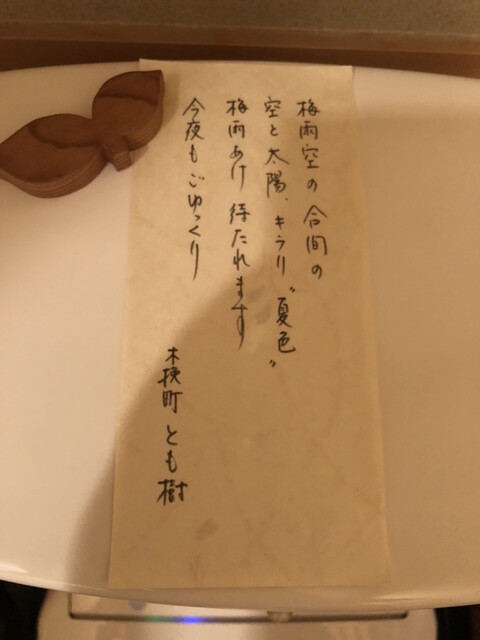 梅雨空の合間の
空と太陽、キラリ〝夏色〟
梅雨あけ待たれます
今夜もごゆっくり
木挽町 とも樹